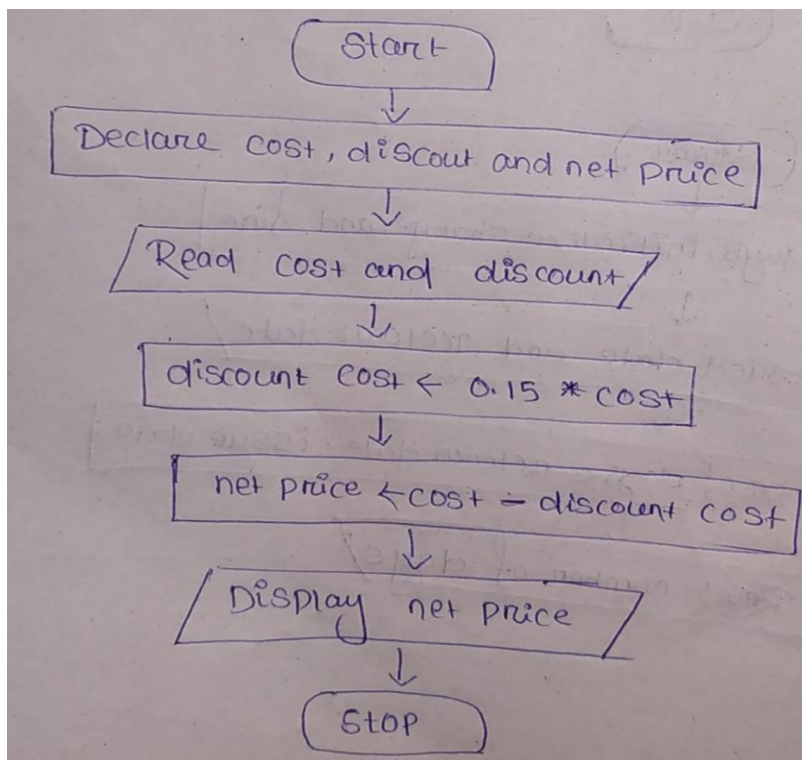 Start
Declare cost, discout and net price
Read cost and discount
discount cost ← 0.15 * cost
net price ← cost - discount cost
Display net price
Stop